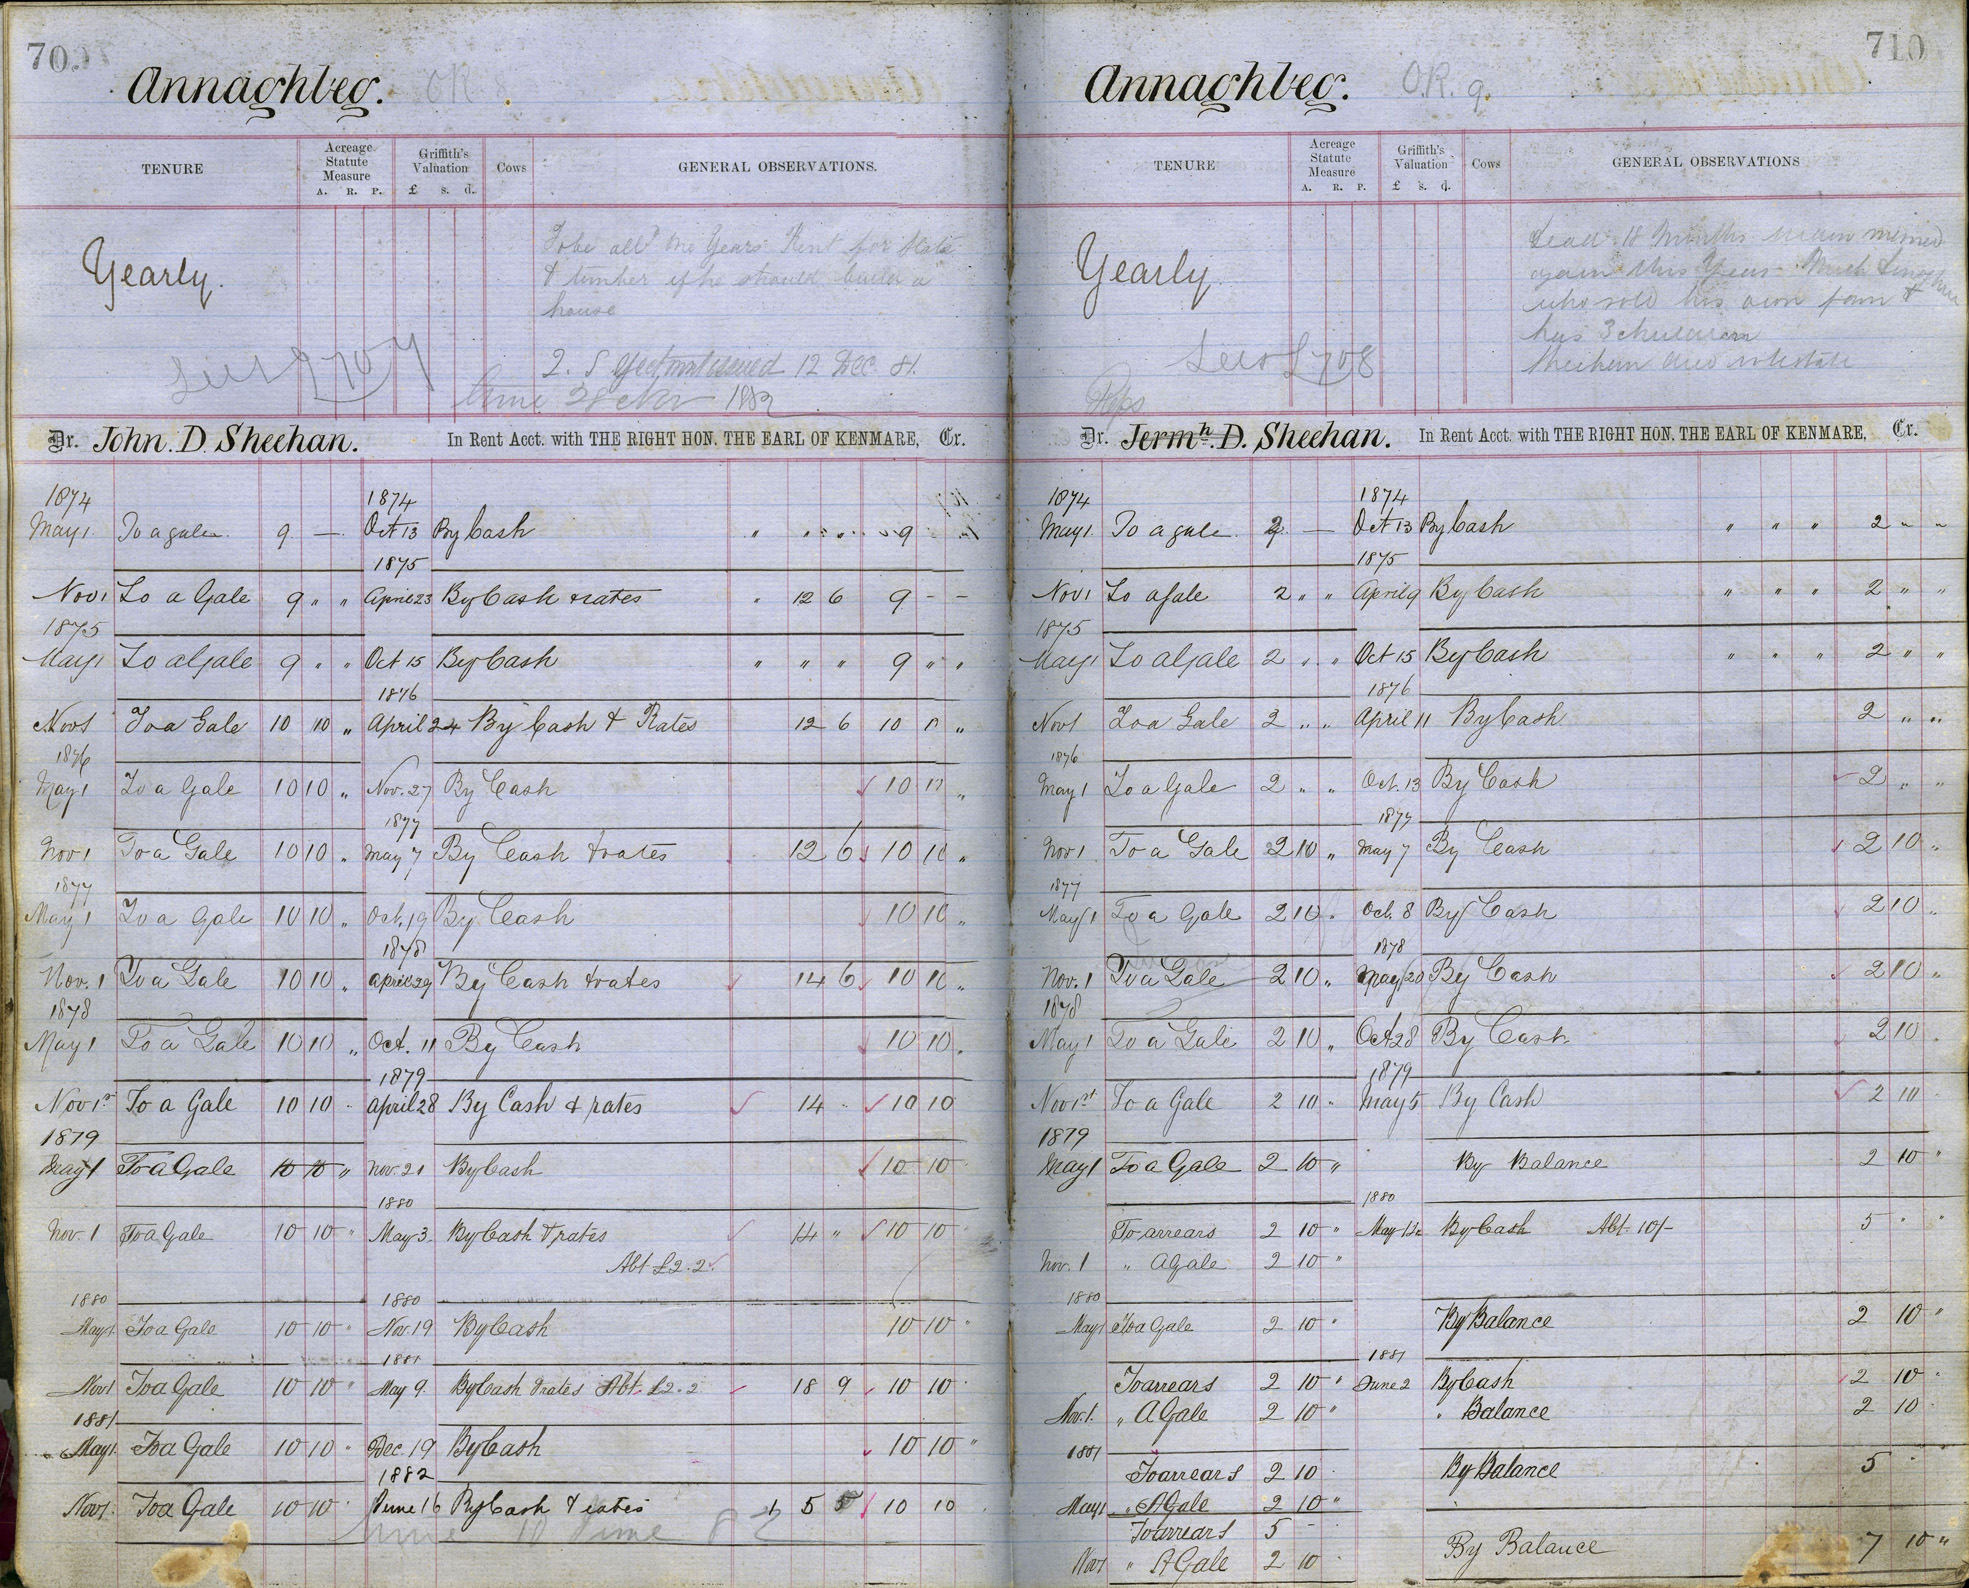 709
Annaghbeg. OR 8
TENURE
Acreage Statute Measure
A. R. P.
Griffith's Valuation
£ s. d.
Cows
GENERAL OBSERVATIONS.
Yearly.
To be alld one Years Rent for Slate
& timber if he should build a
house
2. S Ejectment issued 12 Dec 81.
1882
Dr. John. D. Sheehan. In Rent Acct. with THE RIGHT HON. THE EARL OF KENMARE, Cr.
1874 1874
May 1 To a gale 9 — Oct 13 By Cash " " " 9
1875
Nov 1 To a Gale 9 " " April 23 By Cash & rates " 12 6 9 - -
1875
May 1 To a Gale 9 " " Oct 15 By Cash " " " 9 " "
1876
Nov 1 To a Gale 10 10 " April 24 By Cash & Rates 12 6 10 10 "
1876
May 1 To a Gale 10 10 " Nov. 27 By Cash 10 10 "
1877
Nov 1 To a Gale 10 10 " May 7 By Cash & rates 12 6 10 10 "
1877
May 1 To a Gale 10 10 " Oct. 19 By Cash 10 10 "
1878
Nov. 1 To a Gale 10 10 " April 29 By Cash & rates 14 6 10 10 "
1878
May 1 To a Gale 10 10 " Oct. 11 By Cash 10 10 "
1879
Nov 1st To a Gale 10 10 " April 28 By Cash & rates 14 " 10 10
1879
May 1 To a Gale 10 10 " Nov. 21 By Cash 10 10
1880
Nov. 1 To a Gale 10 10 " May 3 By Cash & rates 14 " 10 10
Abt £2.2.
1880 1880
May 1 To a Gale 10 10 " Nov. 19 By Cash 10 10 "
1881
Nov 1 To a Gale 10 10 " May 9. By Cash & rates Abt. £2.2 18 9 10 10
1881
May 1. To a Gale 10 10 " Dec. 19 By Cash 10 10 "
1882
Nov 1. To a Gale 10 10 June 16 By Cash & rates 1 5 5 10 10
10 June 82
710
Annaghbeg. O.R. 9.
TENURE
Acreage Statute Measure
A. R. P.
Griffith's Valuation
£ s. d.
Cows
GENERAL OBSERVATIONS
Yearly
dead 18 Months widow married
again this Year Mich
who sold his own farm &
has 3 children
Sheehan died intestate
708
Dr. Jermh. D. Sheehan. In Rent Acct. with THE RIGHT HON. THE EARL OF KENMARE, Cr.
1874 1874
May 1. To a gale 2 — Oct 13 By Cash " " " 2 " "
1875
Nov 1 To a Gale 2 " " April 9 By Cash " " " 2 " "
1875
May 1 To a Gale 2 " " Oct 15 By Cash " " " 2 " "
1876
Nov 1 To a Gale 2 " " April 11 By Cash 2 " "
1876
May 1 To a Gale 2 " " Oct. 13 By Cash 2 " "
1877
Nov 1 To a Gale 2 10 " May 7 By Cash 2 10 "
1877
May 1 To a Gale 2 10 " Oct. 8 By Cash 2 10 "
1878
Nov. 1 To a Gale 2 10 " May 20 By Cash 2 10 "
1878
May 1 To a Gale 2 10 " Oct 28 By Cash 2 10
1879
Nov 1st To a Gale 2 10 " May 5 By Cash 2 10
1879
May 1 To a Gale 2 10 " By Balance 2 10 "
1880
To arrears 2 10 " May 12 By Cash Abt. 10/- 5 " "
Nov. 1 " A Gale 2 10 "
1880
May 1 To a Gale 2 10 " By Balance 2 10 "
1881
To arrears 2 10 " June 2 By Cash 2 10
Nov. 1. " A Gale 2 10 " " Balance 2 10
1881
To arrears 2 10 By Balance 5
May 1 " A Gale 2 10 "
To arrears 5 -
Nov 1 " A Gale 2 10 By Balance 7 10 "